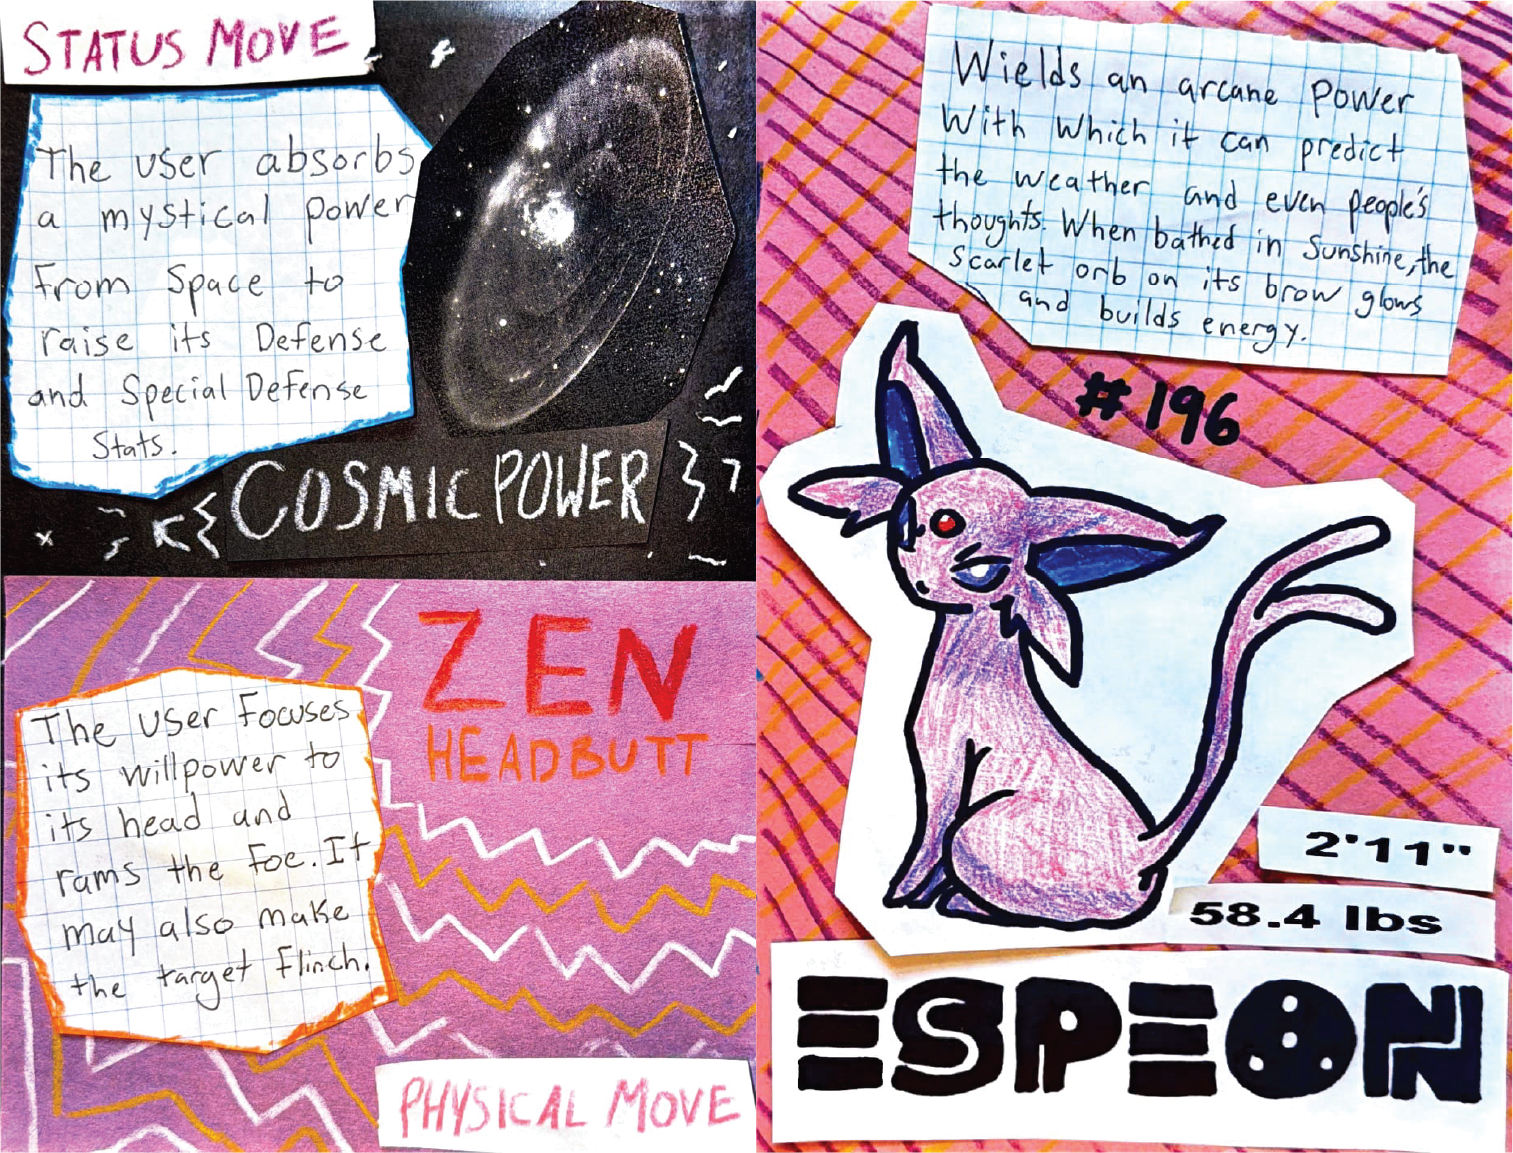 STATUS MOVE
The user absorbs
a mystical power
From Space to
raise its Defense
and Special Defense
Stats.
COSMIC POWER
ZEN
HEADBUTT
The user Focuses
its willpower to
its head and
rams the foe. It
may also make
the target Flinch.
PHYSICAL MOVE
Wields an arcane Power
With which it can predict
the weather and even people's
thoughts. When bathed in Sunshine, the
Scarlet orb on its brow glows
and builds energy.
#196
2'11"
58.4 lbs
ESPEON